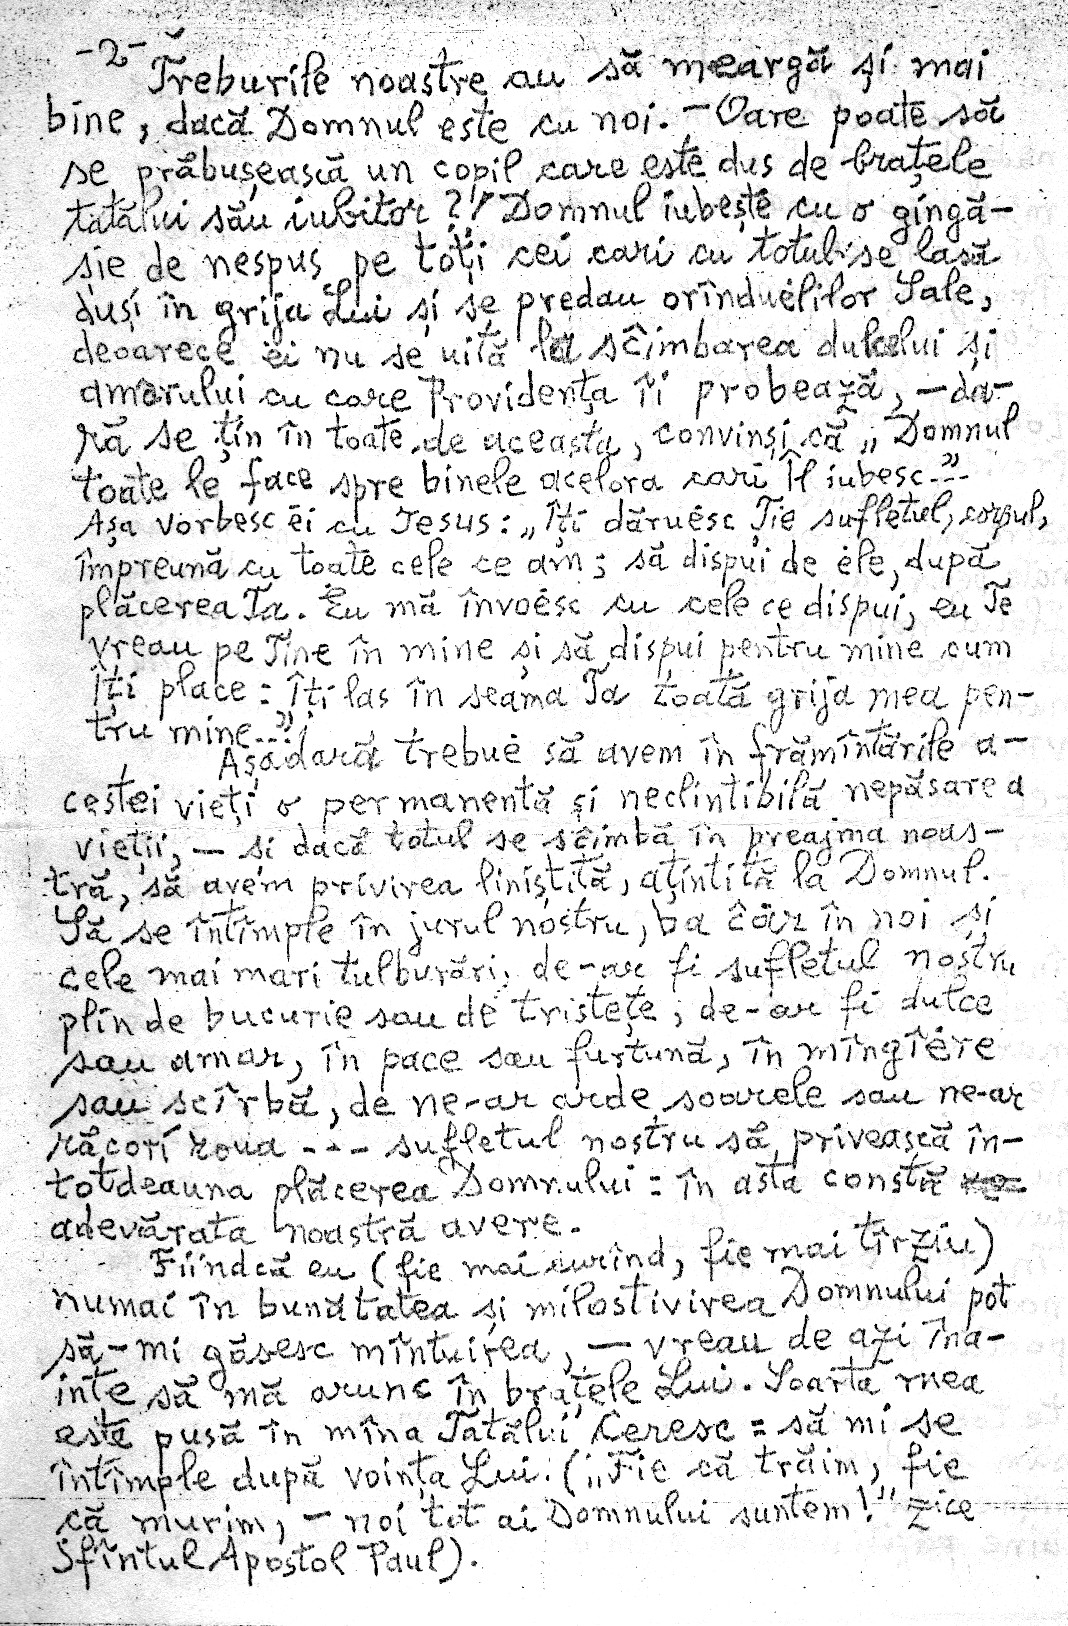 -2-
Treburile noastre au să meargă și mai
bine, dacă Domnul este cu noi. - Oare poate să
se prăbușească un copil care este dus de brațele
tatălui său iubitor?! Domnul iubește cu o gingă-
șie de nespus pe toți cei cari cu totul se lasă
duși în grija Lui și se predau orînduėlilor Sale,
deoarece ėi nu se uită la sĉimbarea dulcelui și
amarului cu care Providența îi probează, - da-
ră se țin în toate de aceasta, convinși că „Domnul
toate le face spre binele acelora cari Îl iubesc..."
Așa vorbesc ėi cu Jesus: „Îți dăruėsc Ție sufletul, corpul,
împreună cu toate cele ce am; să dispui de ėle, după
plăcerea Ta. Ėu mă învoėsc cu cele ce dispui, eu Te
vreau pe Tine în mine și să dispui pentru mine cum
Îți place: Îți las în seama Ta toată grija mea pen-
tru mine...!"
Așadară trebuė să avem în frămîntările a-
cestei vieți o permanentă și neclintibilă nepăsare a
vieții, - și dacă totul se sĉimbă în preajma noas-
tră, să avem privirea liniștită, ațintită la Domnul.
Să se întîmple în jurul nostru, ba ĉăr în noi și
cele mai mari tulburări, de-ar fi sufletul nostru
plin de bucurie sau de tristețe; de-ar fi dulce
sau amar, în pace sau furtună, în mîngîėre
sau scîrbă, de ne-ar arde soarele sau ne-ar
răcori roua --- sufletul nostru să privească în-
totdeauna plăcerea Domnului: în asta constă
adevărata noastră avere.
Fiindcă eu (fie mai curînd, fie mai tîrziu)
numai în bunătatea și milostivirea Domnului pot
să-mi găsesc mîntuirea, - vreau de azi îna-
inte să mă arunc în brațele Lui. Soarta mea
este pusă în mîna Tatălui Ceresc: să mi se
întîmple după voința Lui. („Fie că trăim, fie
că murim, - noi tot ai Domnului suntem!" zice
Sfîntul Apostol Paul).